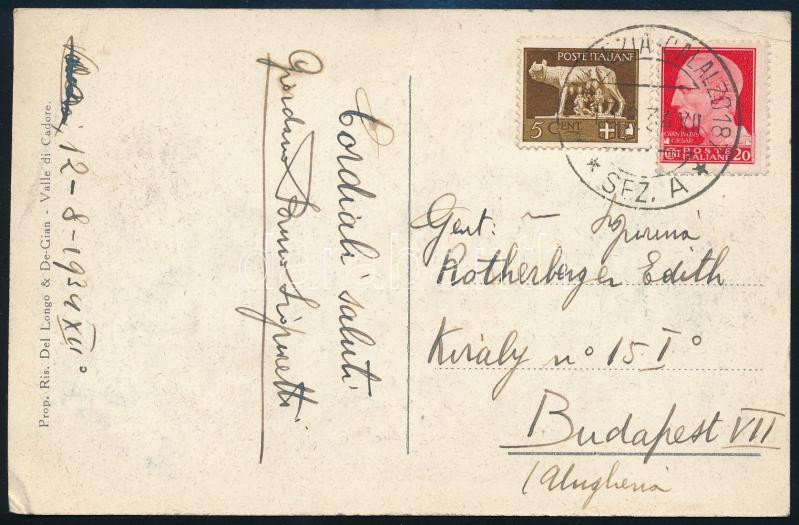 Prop. Ris. Del Longo & De-Gian - Valle di Cadore.
12-8-1934 XII°
Cordiali saluti
Giordano
POSTE ITALIANE
5 CENT
POSTE
ITALIANE
CENT 20
CAESAR
CALALZO 18
SEZ. A
Gent: - Signorina
Rotherberger Edith
Király n° 15 I°
Budapest VII
(Ungheria
darabanth.com